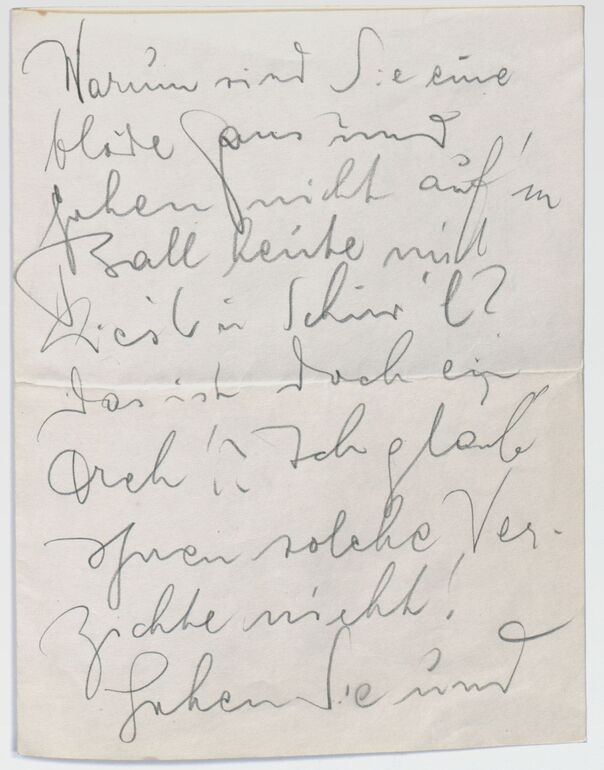 Warum sind Sie eine
blöde Gans und
gehen nicht auf'm
Ball heute mit
in
Das ist doch ein
Ich glaube
Ihnen solche Ver-
zichte nicht!
Gehen Sie und